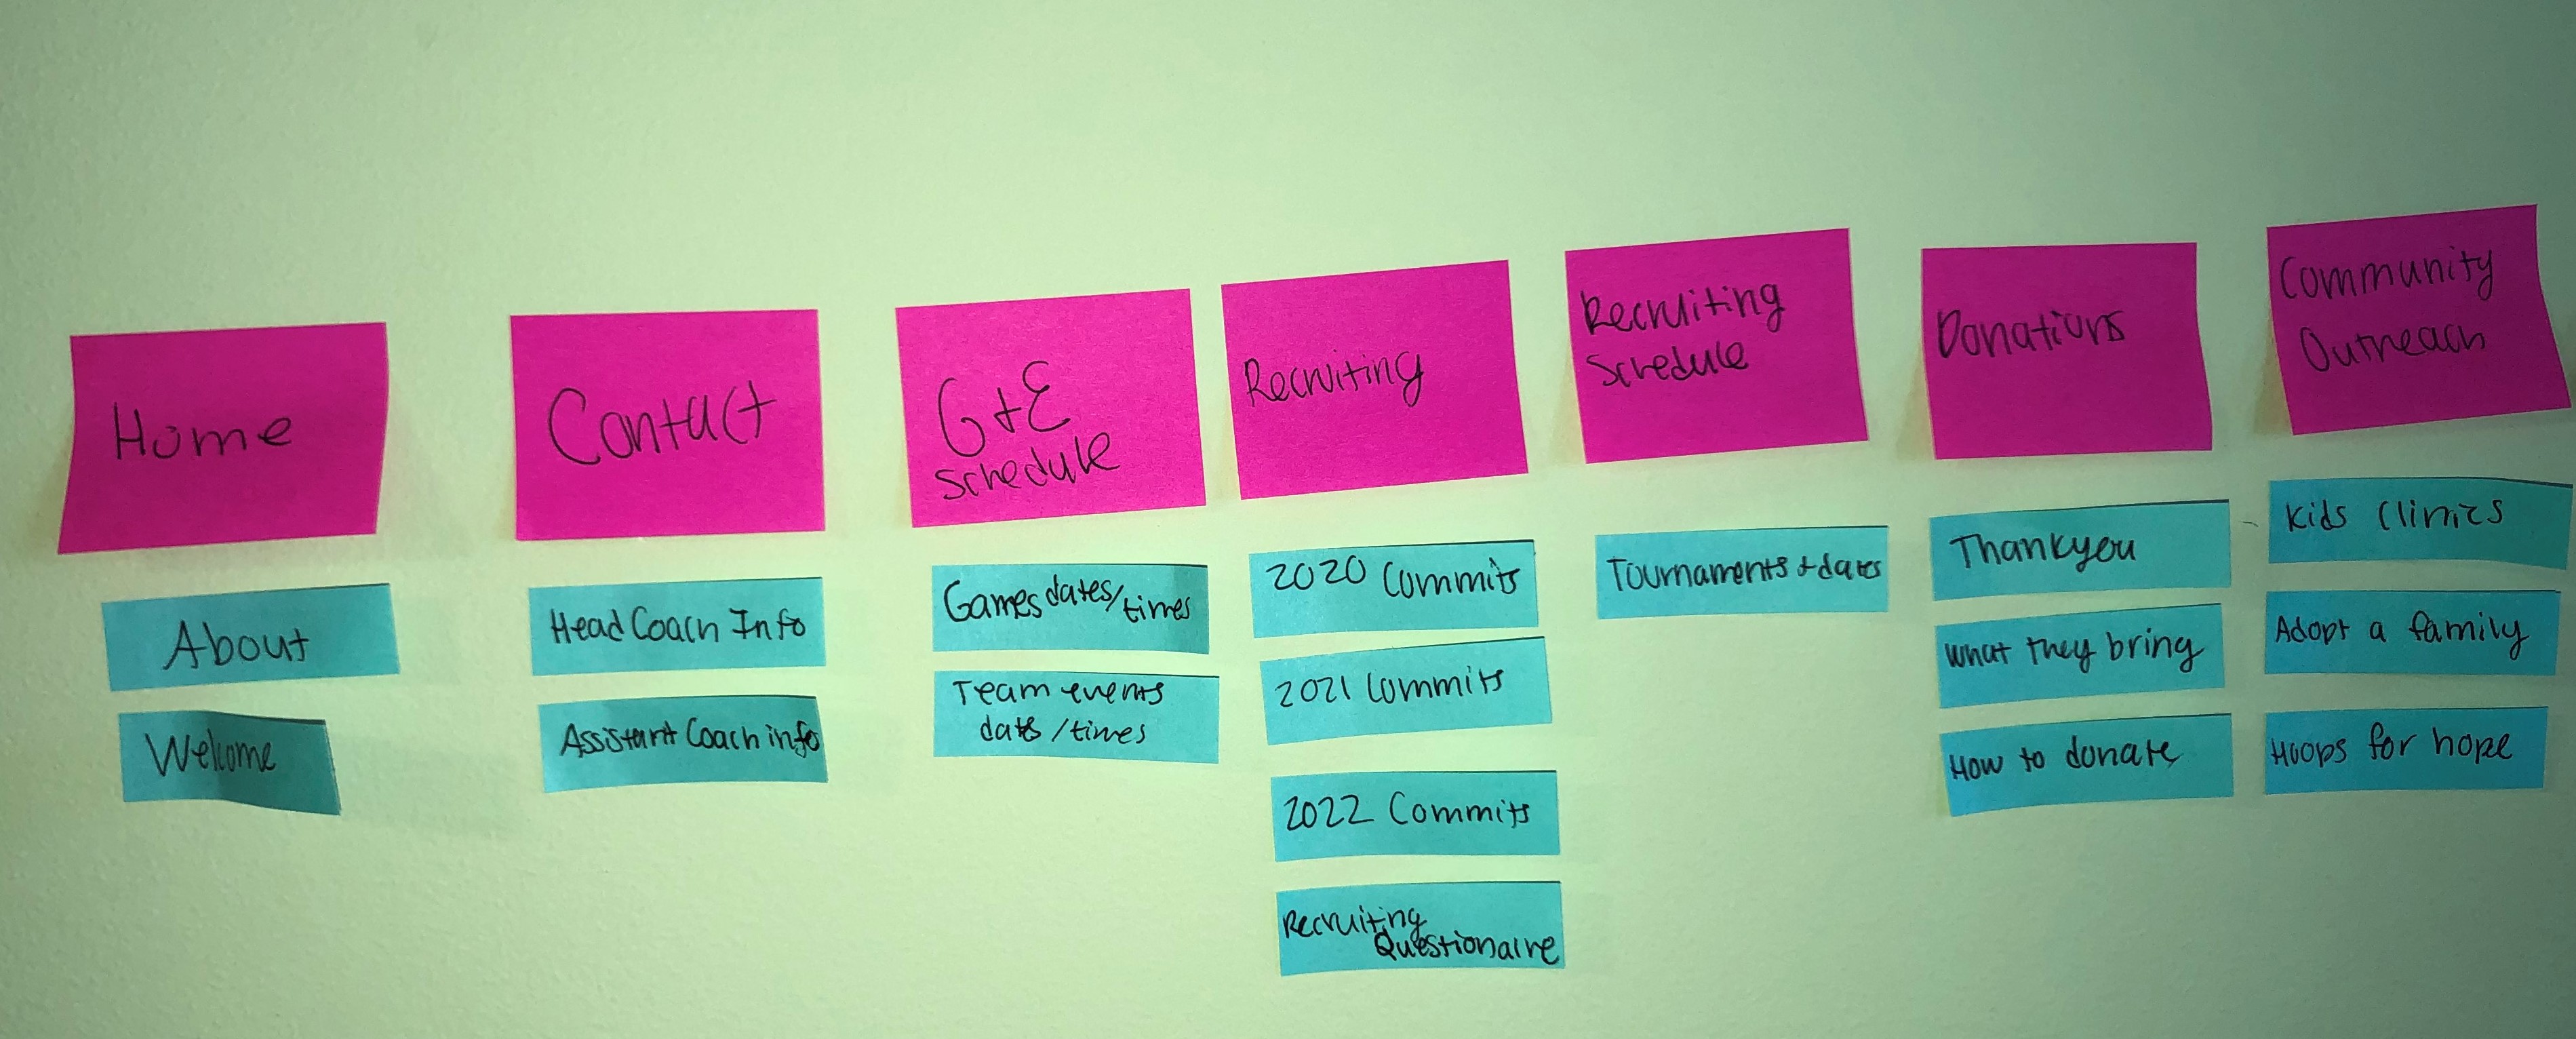 Home
About
Welcome
Contact
Head Coach Info
Assistant Coach info
G+E
schedule
Games dates/times
Team events
dates/times
Recruiting
2020 Commits
2021 Commits
2022 Commits
Recruiting
Questionaire
Recruiting
Schedule
Tournaments + dates
Donations
Thankyou
What they bring
How to donate
Community
Outreach
Kids Clinics
Adopt a family
Hoops for hope